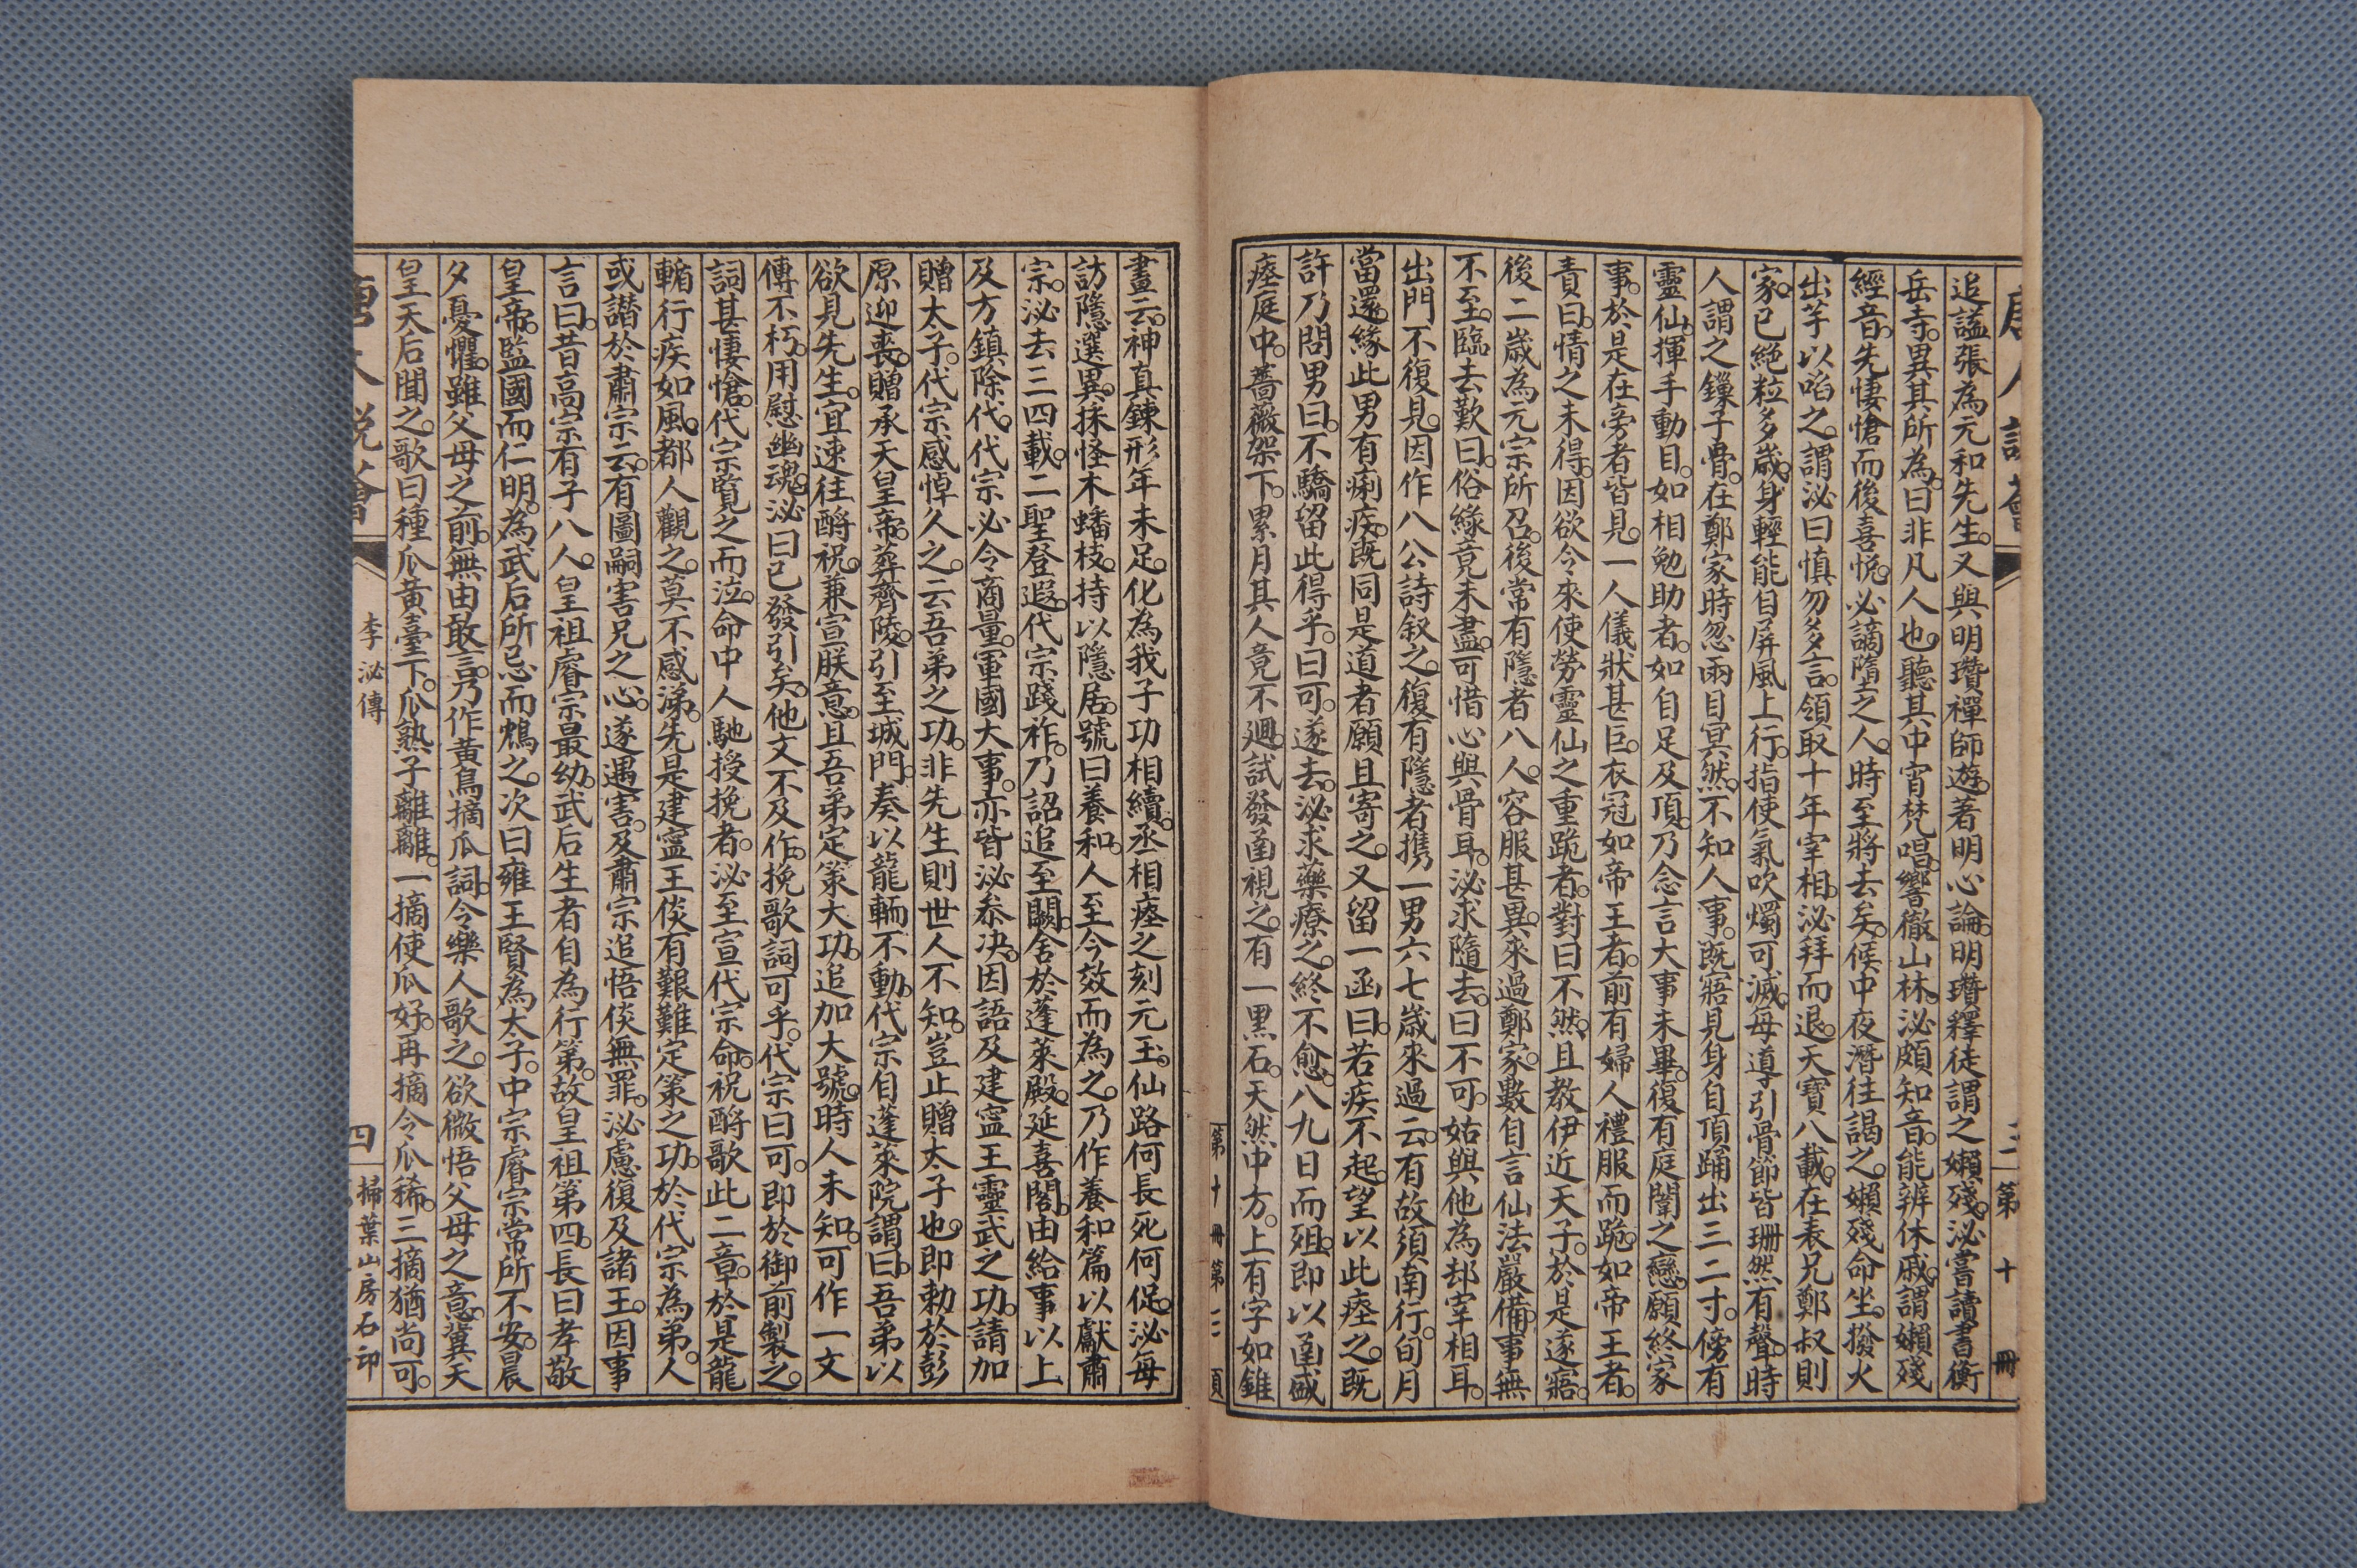 唐人說薈
三
第十冊
追諡張為元和先生。又與明瓚禪師遊。著明心論。明瓚釋徒謂之嬾殘。泌嘗讀書衡
岳寺。異其所為。曰非凡人也。聽其中宵梵唱。響徹山林。泌頗知音。能辨休戚。謂嬾殘
經音。先悽愴而後喜悅。必謫隨之人。時至將去矣。候中夜潛往謁之。嬾殘命坐。撥火
出芋以啗之。謂泌曰慎勿多言。領取十年宰相。泌拜而退。天寶八載。在表兄鄭叔則
家。已絶粒多歲。身輕能自屏風上行。指使氣吹燭可滅。每導引骨節皆珊然有聲。時
人謂之鏁子骨。在鄭家時忽兩目冥然。不知人事。既寤見身自頂踊出三二寸。傍有
靈仙。揮手動目。如相勉助者。如自足及頂。乃念言大事未畢。復有庭闈之戀。願終家
事。於是在旁者皆見。一人儀狀甚巨。衣冠如帝王者。前有婦人禮服而跪。如帝王者。
責曰。情之未得。因欲令來使勞靈仙之重跪者。對曰不然。且教伊近天子。於是遂寤。
後二歲為元宗所召。後常有隱者八人。容服甚異。來過鄭家。數自言仙法嚴備。事無
不至。臨去歎曰。俗緣竟未盡。可惜心與骨耳。泌求隨去。曰不可。姑與他為却宰相耳。
出門不復見。因作八公詩叙之。復有隱者攜一男六七歲來過。云。有故須南行。旬月
當還。緣此男有痢疾。既同是道者願且寄之。又留一函曰。若疾不起。望以此瘞之。既
許乃問男曰。不驕留此得乎。曰可。遂去。泌求藥療之。終不愈。八九日而殂。即以函盛
瘞庭中。薔薇架下。累月其人竟不迴。試發函視之。有一黑石。天然中方。上有字如錐
第十冊第三頁
畫云。神真鍊形年未足。化為我子功相續。丞相瘞之刻元玉。仙路何長死何促。泌每
訪隱選異。採怪木蟠枝。持以隱居。號曰養和。人至今效而為之。乃作養和篇以獻肅
宗。泌去三四載。二聖登遐。代宗踐祚。乃詔追至闕。舍於蓬萊殿。延喜閣。由給事以上
及方鎮除代。代宗必令商量。軍國大事。亦皆泌叅决。因語及建寧王靈武之功。請加
贈太子。代宗感悼久之。云吾弟之功。非先生則世人不知。豈止贈太子也。即勅於彭
原迎喪。贈承天皇帝。葬齊陵。引至城門。奏以龍輀不動。代宗自蓬萊院謂曰。吾弟以
欲見先生。宜速往酹祝。兼宣朕意。且吾弟定策大功。追加大號。時人未知。可作一文
傳不朽。用慰幽魂。泌曰已發引矣。他文不及作。挽歌詞可乎。代宗曰可。即於御前製之。
詞甚悽愴。代宗覽之而泣。命中人馳授挽者。泌至宣代宗命。祝酹歌此二章。於是龍
輴行疾如風。都人觀之。莫不感涕。先是建寧王倓有艱難定策之功。於代宗為弟。人
或譖於肅宗云。有圖嗣害兄之心。遂遇害。及肅宗追悟倓無罪。泌慮復及諸王。因事
言曰。昔高宗有子八人。皇祖睿宗最幼。武后生者自為行第。故皇祖第四。長曰孝敬
皇帝。監國而仁明。為武后所忌而鴆之。次曰雍王賢為太子。中宗睿宗常所不安。晨
夕憂懼。雖父母之前。無由敢言。乃作黃鳥摘瓜詞。令樂人歌之。欲微悟父母之意。冀天
皇天后聞之。歌曰種瓜黃臺下。瓜熟子離離。一摘使瓜好。再摘令瓜稀。三摘猶尚可。
唐人說薈
李泌傳
四
掃葉山房石印